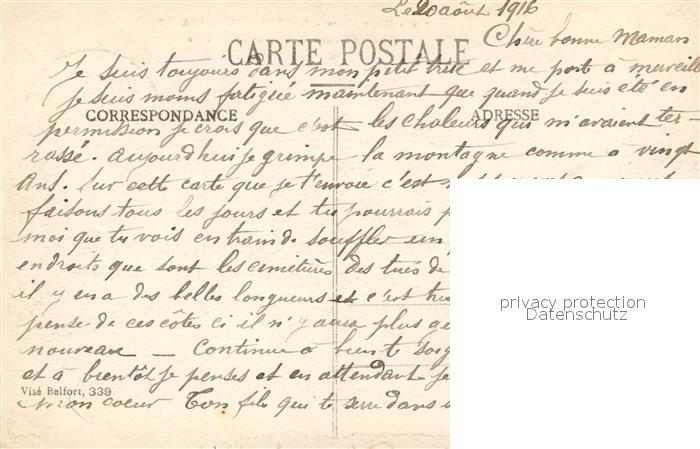 Le 20 août 1916
CARTE POSTALE
Chère bonne Maman
Je suis toujours dans mon petit et me porte à merveille
je suis moins fatigué maintenant que quand je suis été en
CORRESPONDANCE
ADRESSE
permission je crois que c'est les chaleurs qui m'avaient ter-
rassé. aujourd'hui je grimpe la montagne comme a vingt
Ans. Sur cette carte que je t'envoie c'est
faisons tous les jours et tu pourrais
moi que tu vois en train de souffler un
endroits que sont les cimetières des tués de
il y en a des belles longueurs et c'est
penser de ces côtes ci il n'y aura plus
nouveaux — Continue à bien te
et à bientôt je penses et en attendant je
Visé Belfort, 339
mon coeur Ton fils qui te serre dans
privacy protection
Datenschutz